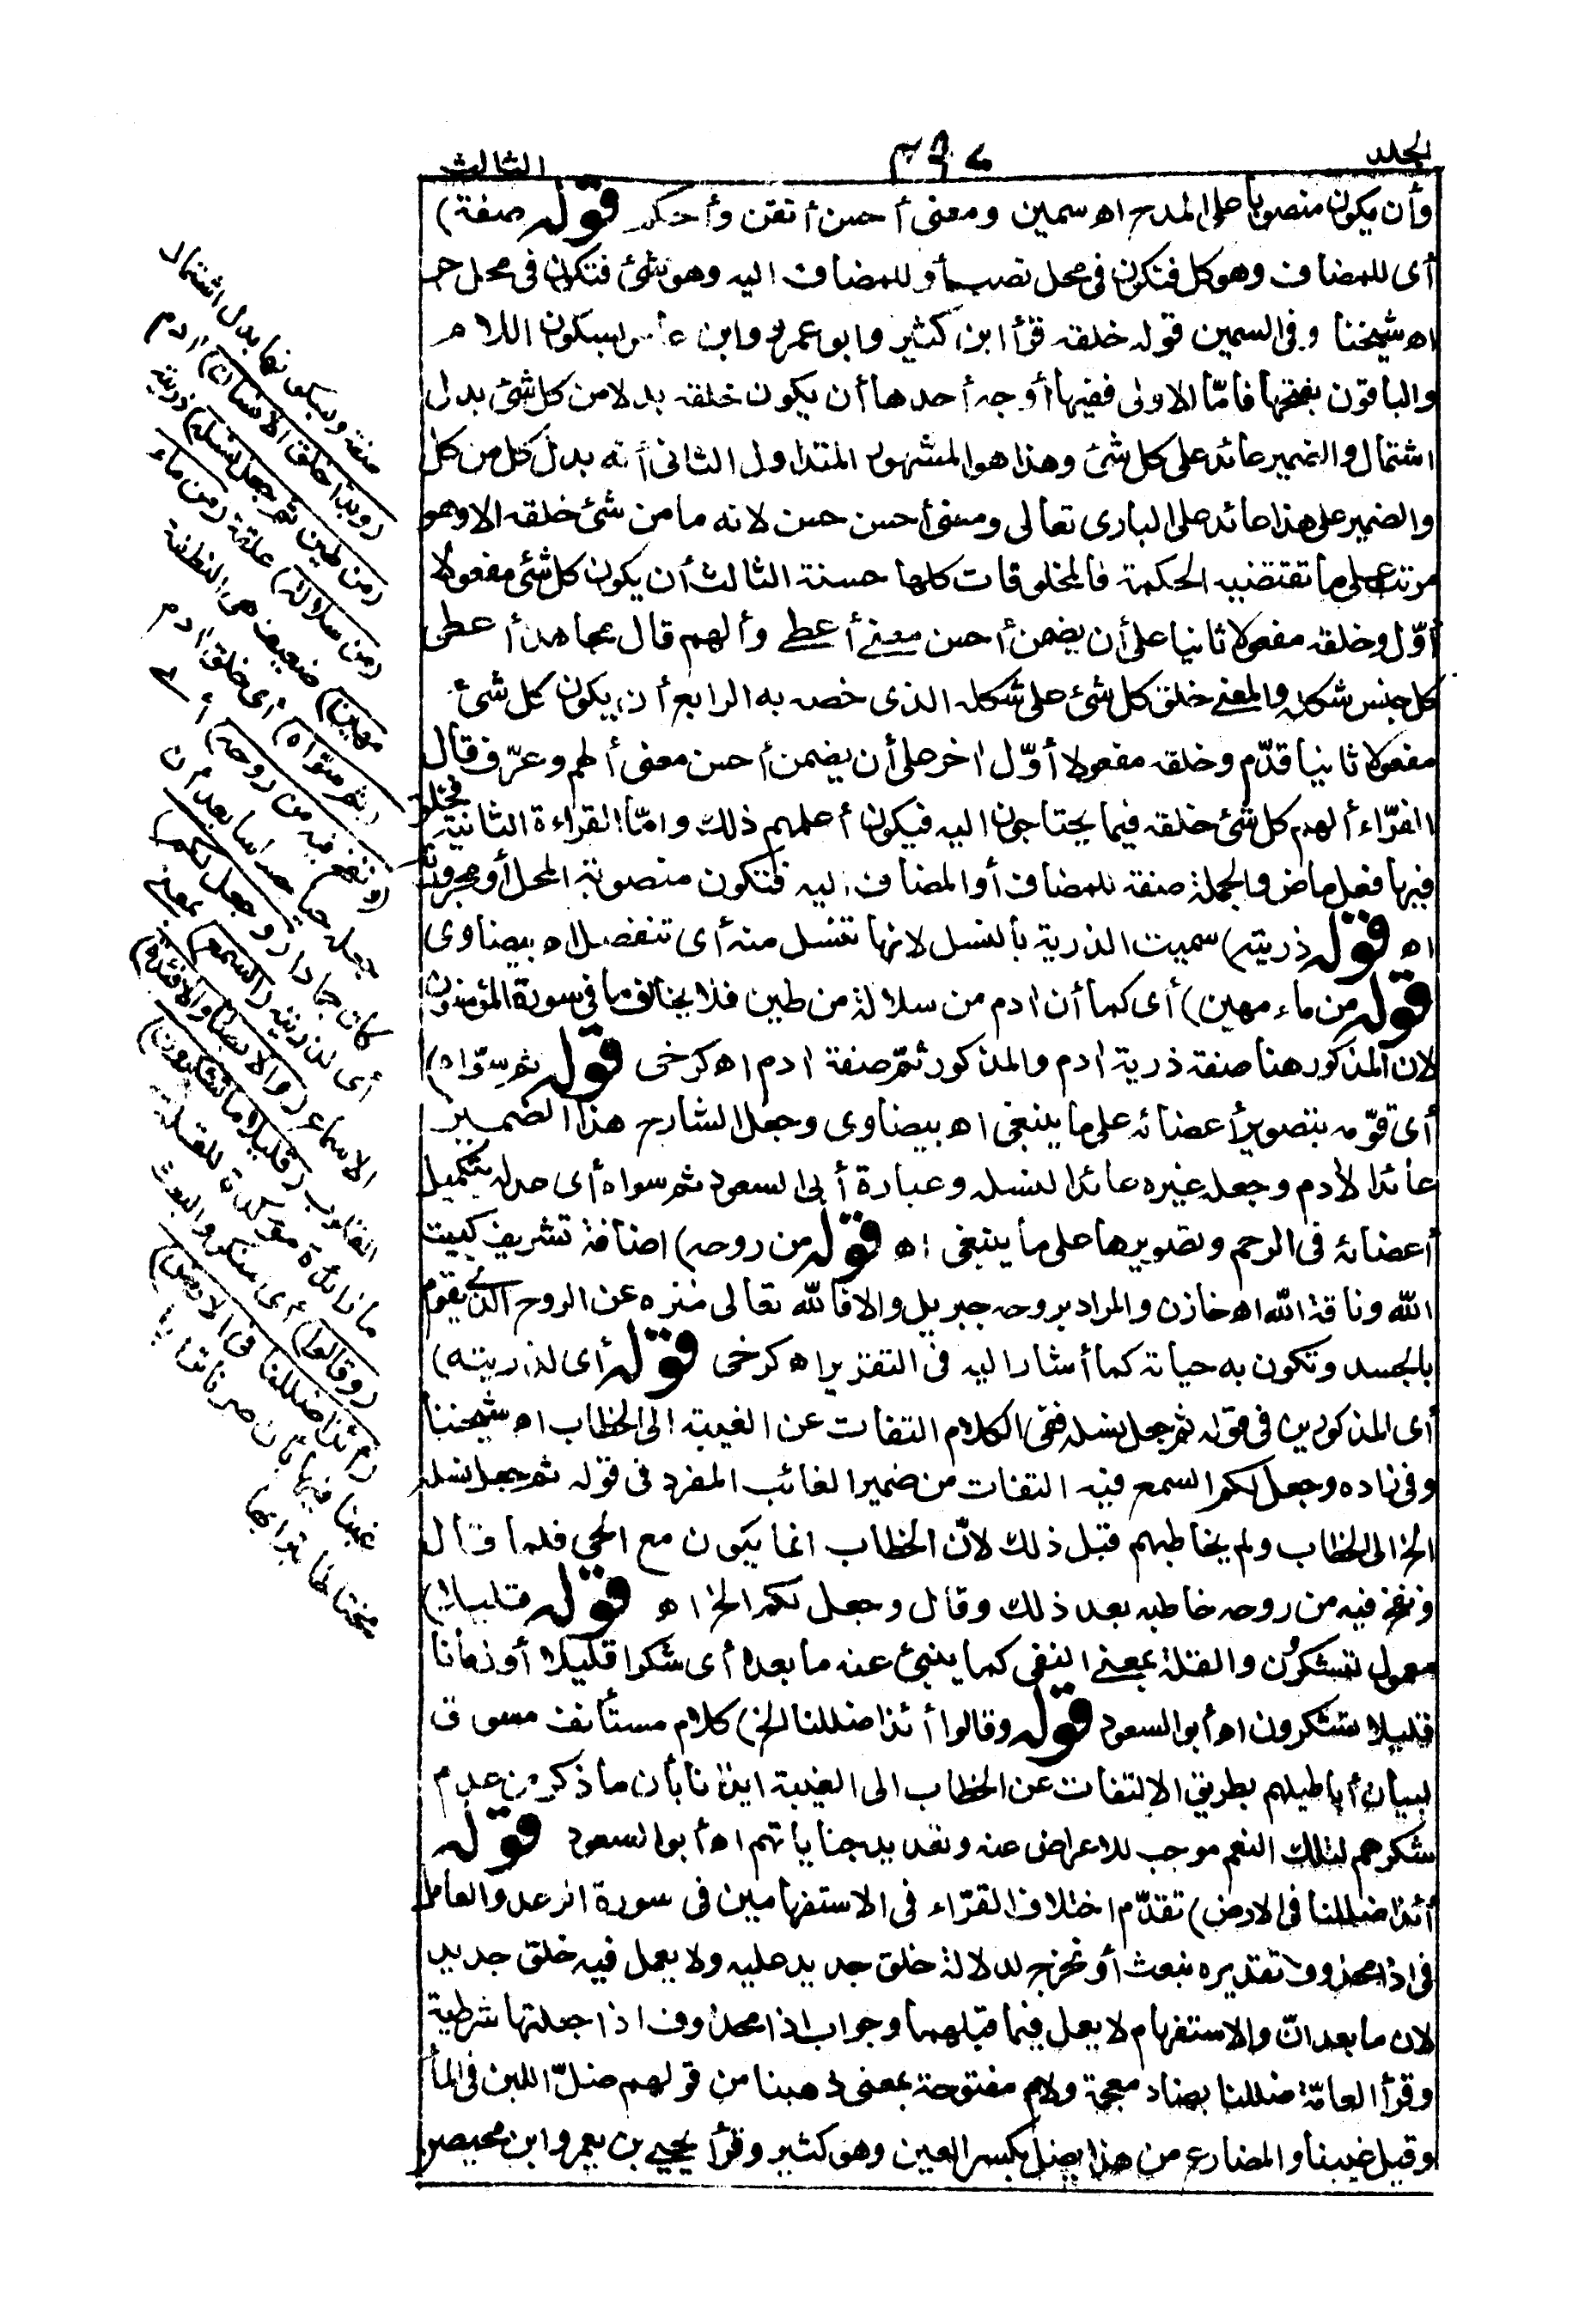 الجلد
٣٩٧
الثالث
وأن يكون منصوبا على المدح اه سمين ومعنى أحسن أتقن وأحكم قوله صفة)
أى للمضاف وهو كل فتكون فى محل نصب أو للمضاف اليه وهو شئ فتكون فى محل جر
اه شيخنا وفى السمين قوله خلقه قرأ ابن كثير وابو عمرو وابن عامر بسكون اللام
والباقون بفتحها فامّا الاولى ففيها أوجه أحدها أن يكون خلقه بدلا من كل شئ بدل
اشتمال والضمير عائد على كل شئ وهذا هو المشهور المتداول الثانى أنه بدل كل من كل
والضمير على هذا عائد على البارى تعالى ومعنى أحسن حسن لانه ما من شئ خلقه الا وهو
مرتب على ما تقتضيه الحكمة فالمخلوقات كلها حسنة الثالث أن يكون كل شئ مفعولا
أوّل وخلقه مفعولا ثانيا على أن يضمن أحسن معنى أعطى وألهم قال مجاهد أعطى
كل جنس شكله والمعنى خلق كل شئ على شكله الذى خصه به الرابع أن يكون كل شئ
مفعولا ثانيا قدّم وخلقه مفعولا أوّل اخر على أن يضمن أحسن معنى ألهم وعرّف قال
الفرّاء ألهم كل شئ خلقه فيما يحتاجون اليه فيكون أعلمهم ذلك وامّا القراءة الثانية فخلق
فيها فعل ماض والجملة صفة للمضاف أو المضاف اليه فتكون منصوبة المحل أو مجرورته
اه قوله ذريته) سميت الذرية بالنسل لانها تنسل منه أى تنفصل اه بيضاوى
قوله من ماء مهين) أى كما أن ادم من سلالة من طين فلا يخالف ما فى سورة المؤمنون
لان المذكور هنا صفة ذرية ادم والمذكور ثمّ صفة ادم اه كرخى قوله ثم سوّاه)
أى قوّمه بتصوير أعضائه على ما ينبغى اه بيضاوى وجعل الشارح هذا الضمير
عائدا لآدم وجعل غيره عائدا لنسله وعبارة أبى السعود ثم سواه أى عدله بتكميل
أعضائه فى الرحم وتصويرها على ما ينبغى اه قوله من روحه) اضافة تشريف كبيت
الله وناقة الله اه خازن والمراد بروحه جبريل والا فالله تعالى منزه عن الروح الذى يقوم
بالجسد وتكون به حياته كما أشار اليه فى التقرير اه كرخى قوله أى لذريته)
أى المذكورين فى قوله ثم جعل نسله ففى الكلام التفات عن الغيبة الى الخطاب اه شيخنا
وفى زاده وجعل لكم السمع فيه التفات من ضمير الغائب المفرد فى قوله ثم جعل نسله
الخ الى الخطاب ولم يخاطبهم قبل ذلك لانّ الخطاب انما يكون مع الحى فلما قال
ونفخ فيه من روحه خاطبه بعد ذلك وقال وجعل لكم الخ اه قوله قليلا)
معمول لتشكرون والقلة بمعنى النفى كما ينبئ عنه ما بعده أى شكرا قليلا أو زمانا
قليلا تشكرون اه أبو السعود قوله وقالوا أئذا ضللنا الخ) كلام مستأنف مسوق
لبيان أباطيلهم بطريق الالتفات عن الخطاب الى الغيبة ايذانا بأن ما ذكر من عدم
شكرهم لتلك النعم موجب للاعراض عنه وتعديد جناياتهم اه أبو السعود قوله
أئذا ضللنا فى الارض) تقدّم اختلاف القرّاء فى الاستفهامين فى سورة الرعد والعامل
فى اذا محذوف تقديره نبعث أو نخرج لدلالة خلق جديد عليه ولا يعمل فيه خلق جديد
لان ما بعد انّ والاستفهام لا يعمل فيما قبلهما وجواب اذا محذوف اذا جعلتها شرطية
وقرأ العامّة ضللنا بضاد معجمة ولام مفتوحة بمعنى ذهبنا من قولهم ضلّ اللبن فى الماء
وقيل غيبنا والمضارع من هذا يضل بكسر العين وهو كثير وقرأ يحيى بن يعمر وابن محيصن
صفة وبسكونها بدل اشتمال
(وبدأ خلق الانسان) ادم
(من طين ثم جعل نسله) ذريته
(من سلالة) علقة (من ماء
مهين) ضعيف هى النطفة
(ثم سوّاه) أى خلق ادم
(ونفخ فيه من روحه) أى
جعله حيا حساسا بعد أن
كان جمادا (وجعل لكم)
أى لذريته (السمع) بمعنى
الاسماع (والابصار والافئدة)
القلوب (قليلا ما تشكرون)
ما زائدة مؤكدة للقلة
(وقالوا) أى منكرو البعث
(أئذا ضللنا فى الارض)
غبنا فيها بأن صرنا ترابا
مختلطا بترابها